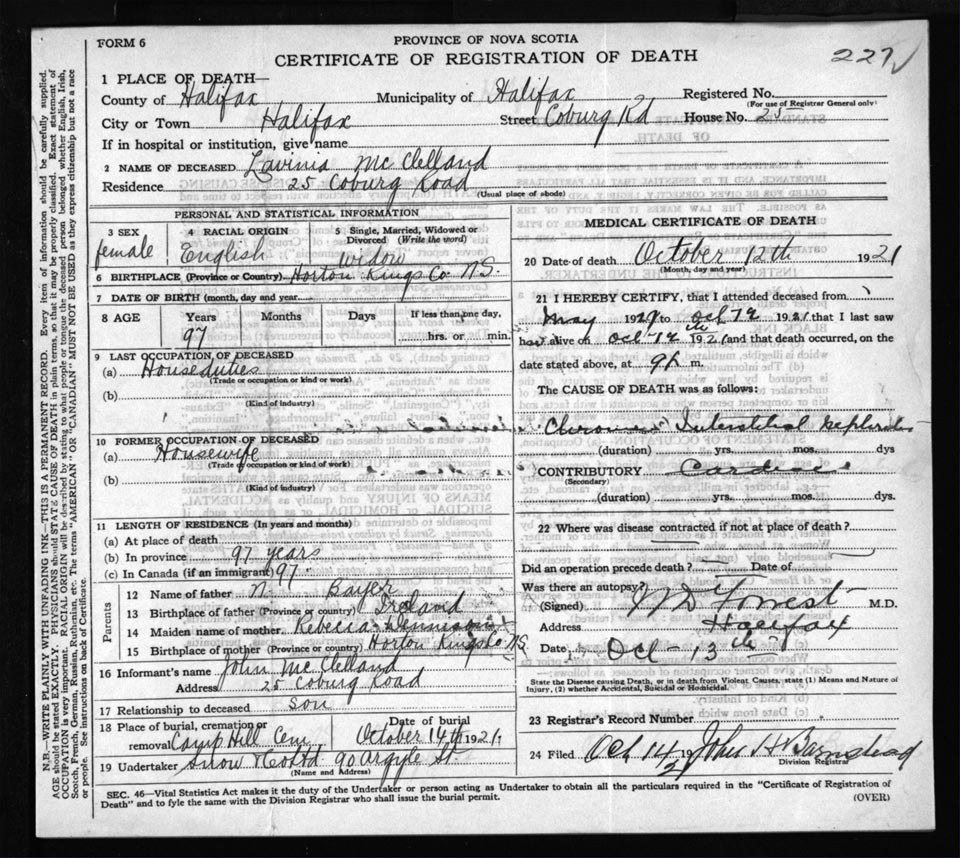 FORM 6
PROVINCE OF NOVA SCOTIA
CERTIFICATE OF REGISTRATION OF DEATH
227
1 PLACE OF DEATH—
County of Halifax Municipality of Halifax Registered No.
(For use of Registrar General only)
City or Town Halifax Street Coburg Rd House No. 25
If in hospital or institution, give name
2 NAME OF DECEASED Lavinia McClelland
Residence 25 Coburg Road
(Usual place of abode)
PERSONAL AND STATISTICAL INFORMATION
3 SEX 4 RACIAL ORIGIN 5 Single, Married, Widowed or Divorced (Write the word)
female English widow
6 BIRTHPLACE (Province or Country) Horton Kings Co N.S.
7 DATE OF BIRTH (month, day and year)
8 AGE Years Months Days If less than one day,
97 hrs. or min.
9 LAST OCCUPATION OF DECEASED
(a) Houseduties
(Trade or occupation or kind or work)
(b)
(Kind of industry)
10 FORMER OCCUPATION OF DECEASED
(a) Housewife
(Trade or occupation or kind or work)
(b)
(Kind of industry)
11 LENGTH OF RESIDENCE (In years and months)
(a) At place of death
(b) In province 97 years
(c) In Canada (if an immigrant) 97
Parents
12 Name of father N.
13 Birthplace of father (Province or country) Ireland
14 Maiden name of mother Rebecca Dennison
15 Birthplace of mother (Province or country) Horton Kings Co N.S.
16 Informant's name John McClelland
Address 25 Coburg Road
17 Relationship to deceased son
18 Place of burial, cremation or removal Camp Hill Cem Date of burial October 14th 1921
19 Undertaker Snow & Co Ltd 90 Argyle St.
(Name and Address)
MEDICAL CERTIFICATE OF DEATH
20 Date of death October 12th 1921
(Month, day and year)
21 I HEREBY CERTIFY, that I attended deceased from
May 19 to Oct 12 1921 that I last saw
h alive on Oct 12th 1921 and that death occurred, on
date stated above, at 9 p m.
The CAUSE OF DEATH was as follows:
Chronic Interstitial Nephritis
(duration) yrs. mos. dys
CONTRIBUTORY Cardiac
(Secondary)
(duration) yrs. mos. dys.
22 Where was disease contracted if not at place of death?
Did an operation precede death? Date of
Was there an autopsy?
(Signed) W D Forrest M.D.
Address Halifax
Date Oct - 13th
State the Disease causing Death, or in death from Violent Causes, state (1) Means and Nature of
Injury, (2) whether Accidental, Suicidal or Homicidal.
23 Registrar's Record Number
24 Filed Oct 14/21 John H Barnstead
Division Registrar
SEC. 46—Vital Statistics Act makes it the duty of the Undertaker or person acting as Undertaker to obtain all the particulars required in the "Certificate of Registration of
Death" and to fyle the same with the Division Registrar who shall issue the burial permit.
(OVER)
N.B.—WRITE PLAINLY WITH UNFADING INK—THIS IS A PERMANENT RECORD. Every item of information should be carefully supplied.
AGE should be stated EXACTLY. PHYSICIANS should STATE CAUSE OF DEATH in plain terms, so that it may be properly classified. Exact statement of
OCCUPATION is very important. RACIAL ORIGIN will be described by stating to what people or tongue the deceased person belonged whether English, Irish,
Scotch, French, German, Russian, Ruthenian, etc. The terms "AMERICAN" OR "CANADIAN" MUST NOT BE USED as they express citizenship but not a race
or people. See instructions on back of Certificate.